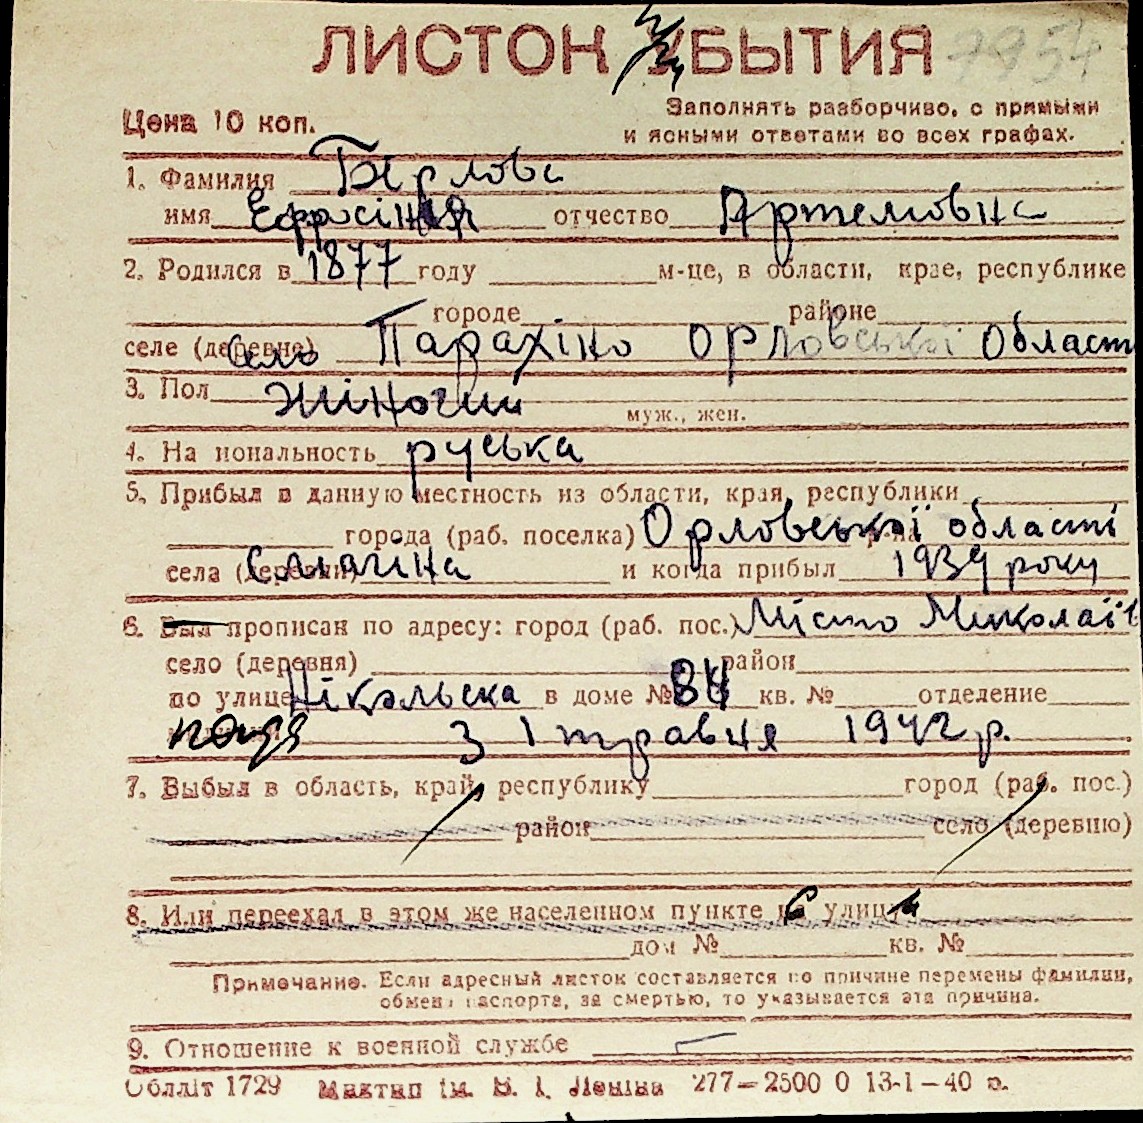 ЛИСТОК УБЫТИЯ 7954
Цена 10 коп.
Заполнять разборчиво, с прямыми
и ясными ответами во всех графах.
1. Фамилия
имя Ефросінія отчество Артемовна
2. Родился в 1877 году м-це, в области, крае, республике
городе районе
селе (деревне) Село Парахіно Орловської Област
3. Пол Жіночий муж., жен.
4. Национальность руська
5. Прибыл в данную местность из области, края, республики
города (раб. поселка) Орловської області
села (деревни) и когда прибыл 1939 року
6. Был прописан по адресу: город (раб. пос.) Місто Миколаїв
село (деревня) район
по улице Нікольска в доме № 84 кв. № отделение
З 1 травня 1942 р.
7. Выбыл в область, край, республику город (раб. пос.)
район село (деревню)
8. Или переехал в этом же населенном пункте на улицу
дом № кв. №
Примечание. Если адресный листок составляется по причине перемены фамилии,
обмена паспорта, за смертью, то указывается эта причина.
9. Отношение к военной службе
Облліт 1729 Миктип ім. В. І. Леніна 277—2500 0 13-1-40 р.